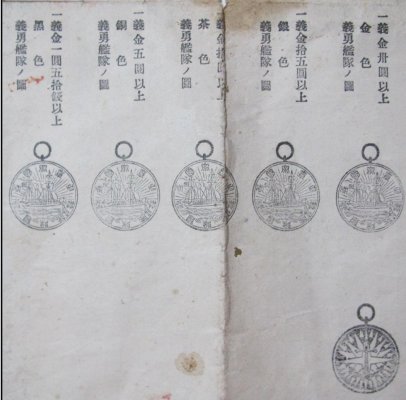 一義金卅圓以上
金色
義勇艦隊ノ圖
一義金拾五圓以上
銀色
義勇艦隊ノ圖
一義金拾圓以上
茶色
義勇艦隊ノ圖
一義金五圓以上
銅色
義勇艦隊ノ圖
一義金一圓五拾錢以上
黑色
義勇艦隊ノ圖